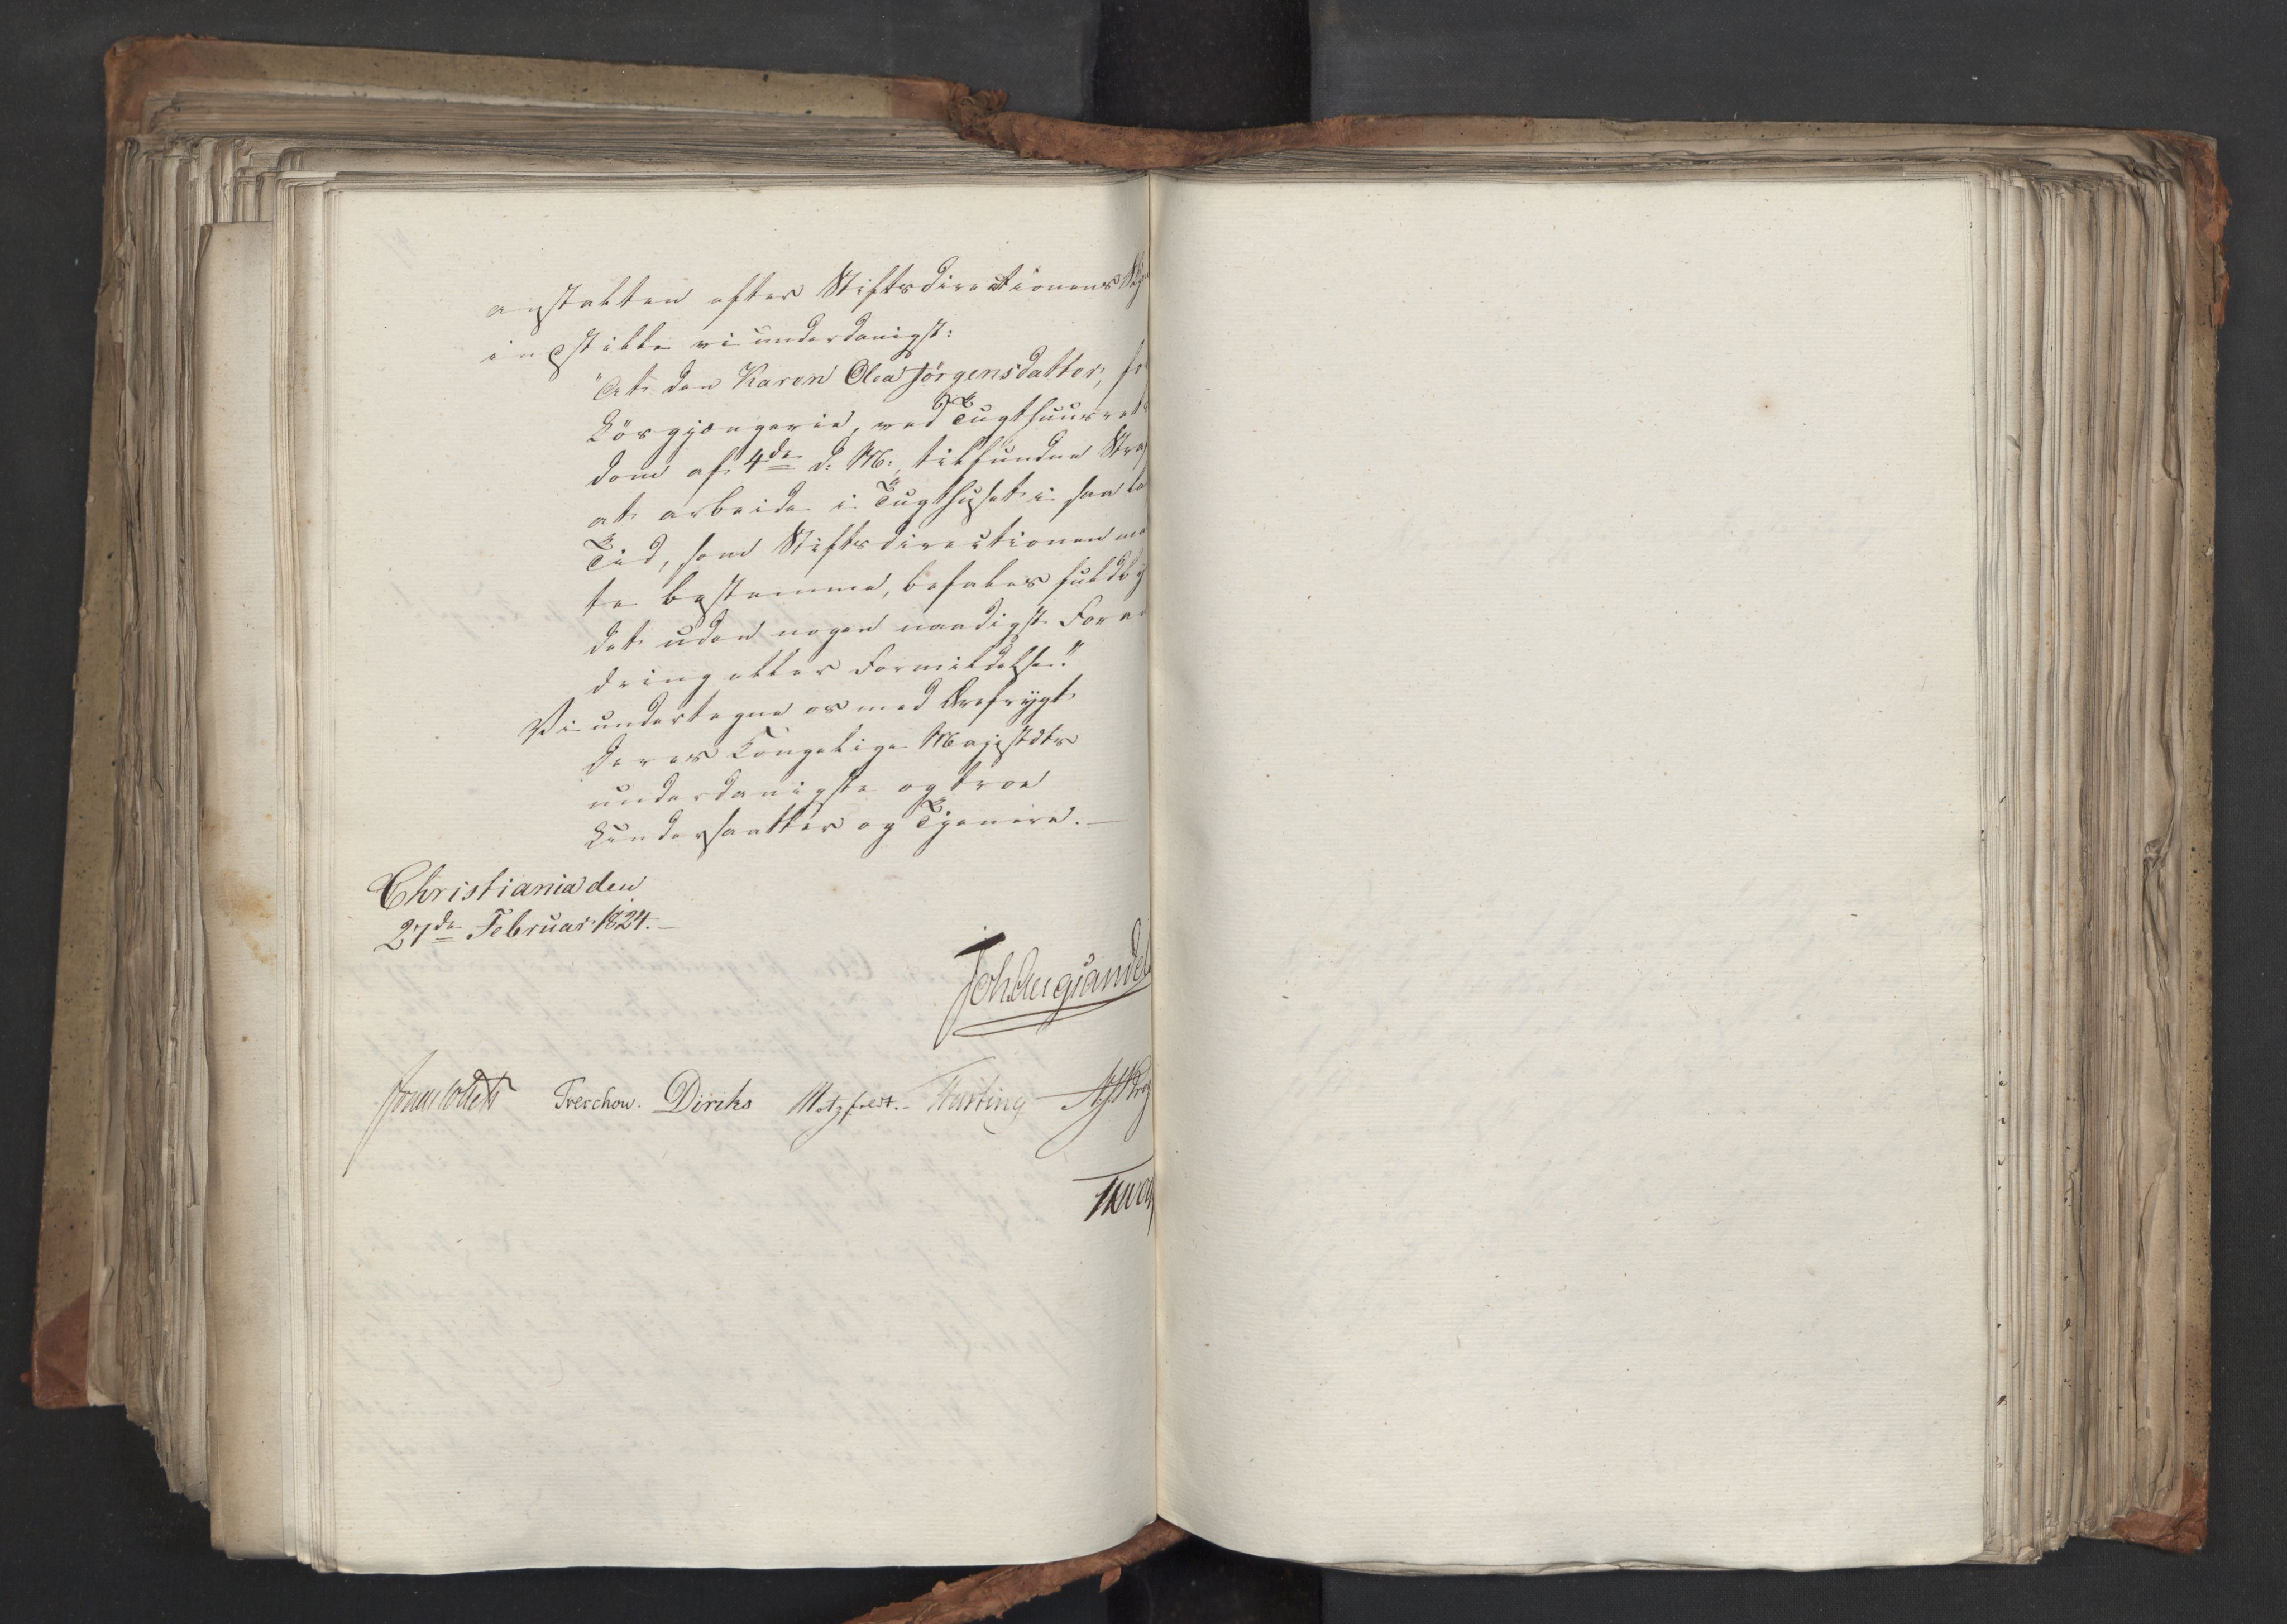 anstalten efter Stiftsdirectionens
indstille vi underdanigst:
"At den Karen Olea Jörgensdatter,
Lösgjængerie, ved Tugthuusrets
dom af 4de d: M:, tilfundne
at arbeide i Tugthuset i saa
Tid, som Stiftsdirectionen
te bestemme, befales fuldby
det uden nogen naadigst Foran
dring eller Formildelse."
Vi undertegne os med Ærefrygt
Deres Kongelige Majestæts
underdanigste og troe
Undersaatter og Tjenere. —
Christiania den
27de Februar 1824. —
Joh. Aug Sandel
Jonas Collett Treschow. Diriks Motzfeldt. – Fasting Krog